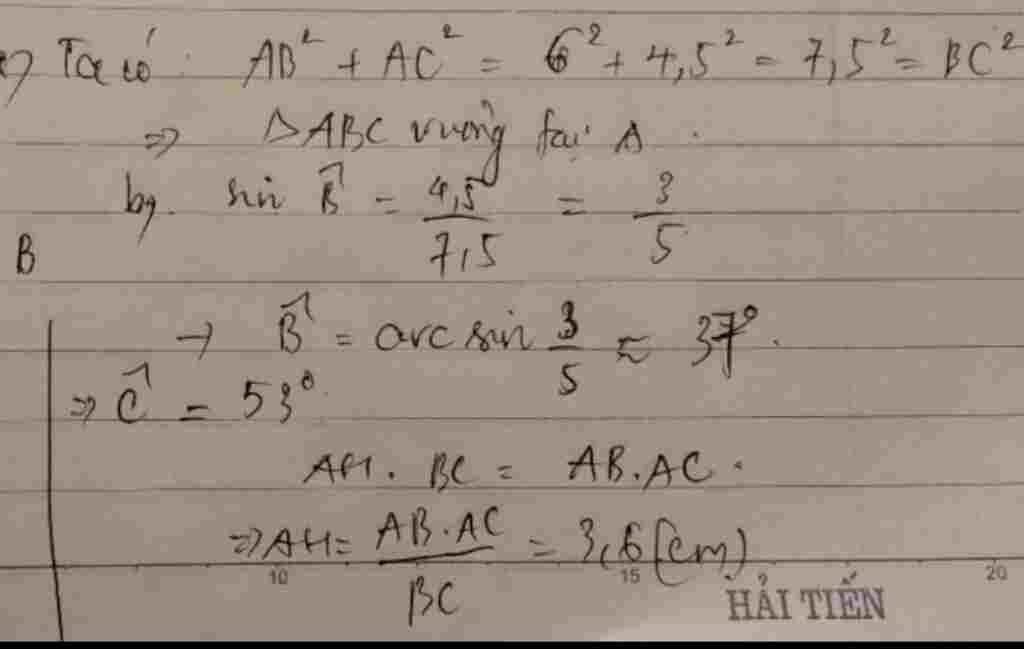 a) Ta có: AB² + AC² = 6² + 4,5² = 7,5² = BC²
=> △ABC vuông tại A.
b) sin B̂ = 4,5/7,5 = 3/5
B
→ B̂ = arc sin 3/5 ≈ 37°.
=> Ĉ = 53°
AH. BC = AB.AC.
=> AH = AB.AC/BC = 3,6 (cm)
10 15 20
HẢI TIẾN